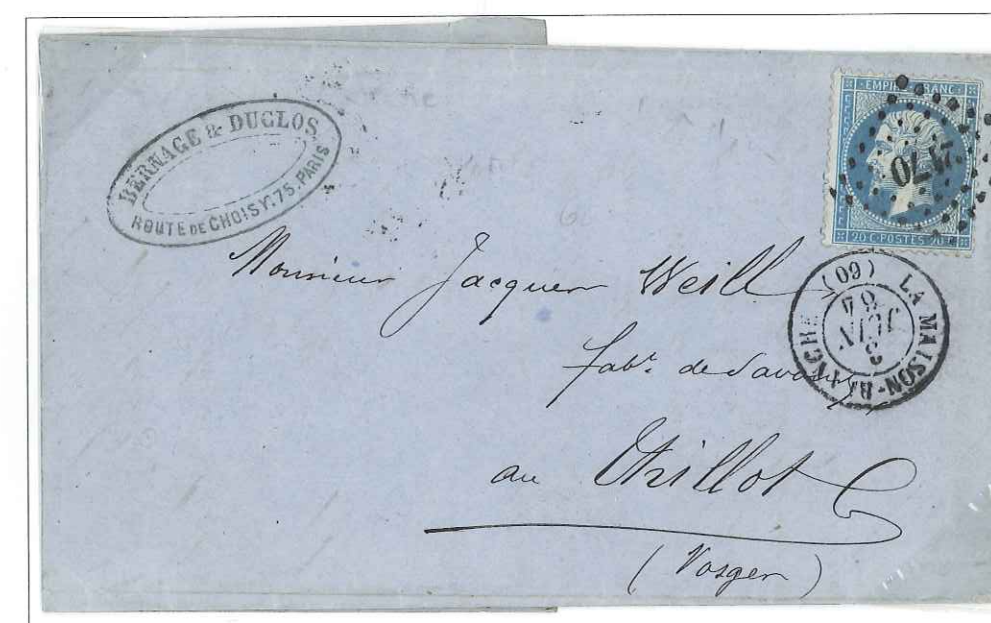 BERNAGE & DUCLOS
ROUTE DE CHOISY.75.PARIS
EMPIRE FRANC
20 C POSTES 20 C
LA MAISON-BLANCHE (60)
JUIN
64
Monsieur Jacques Weill
fabt. de Savons
au Thillot
(Vosges)